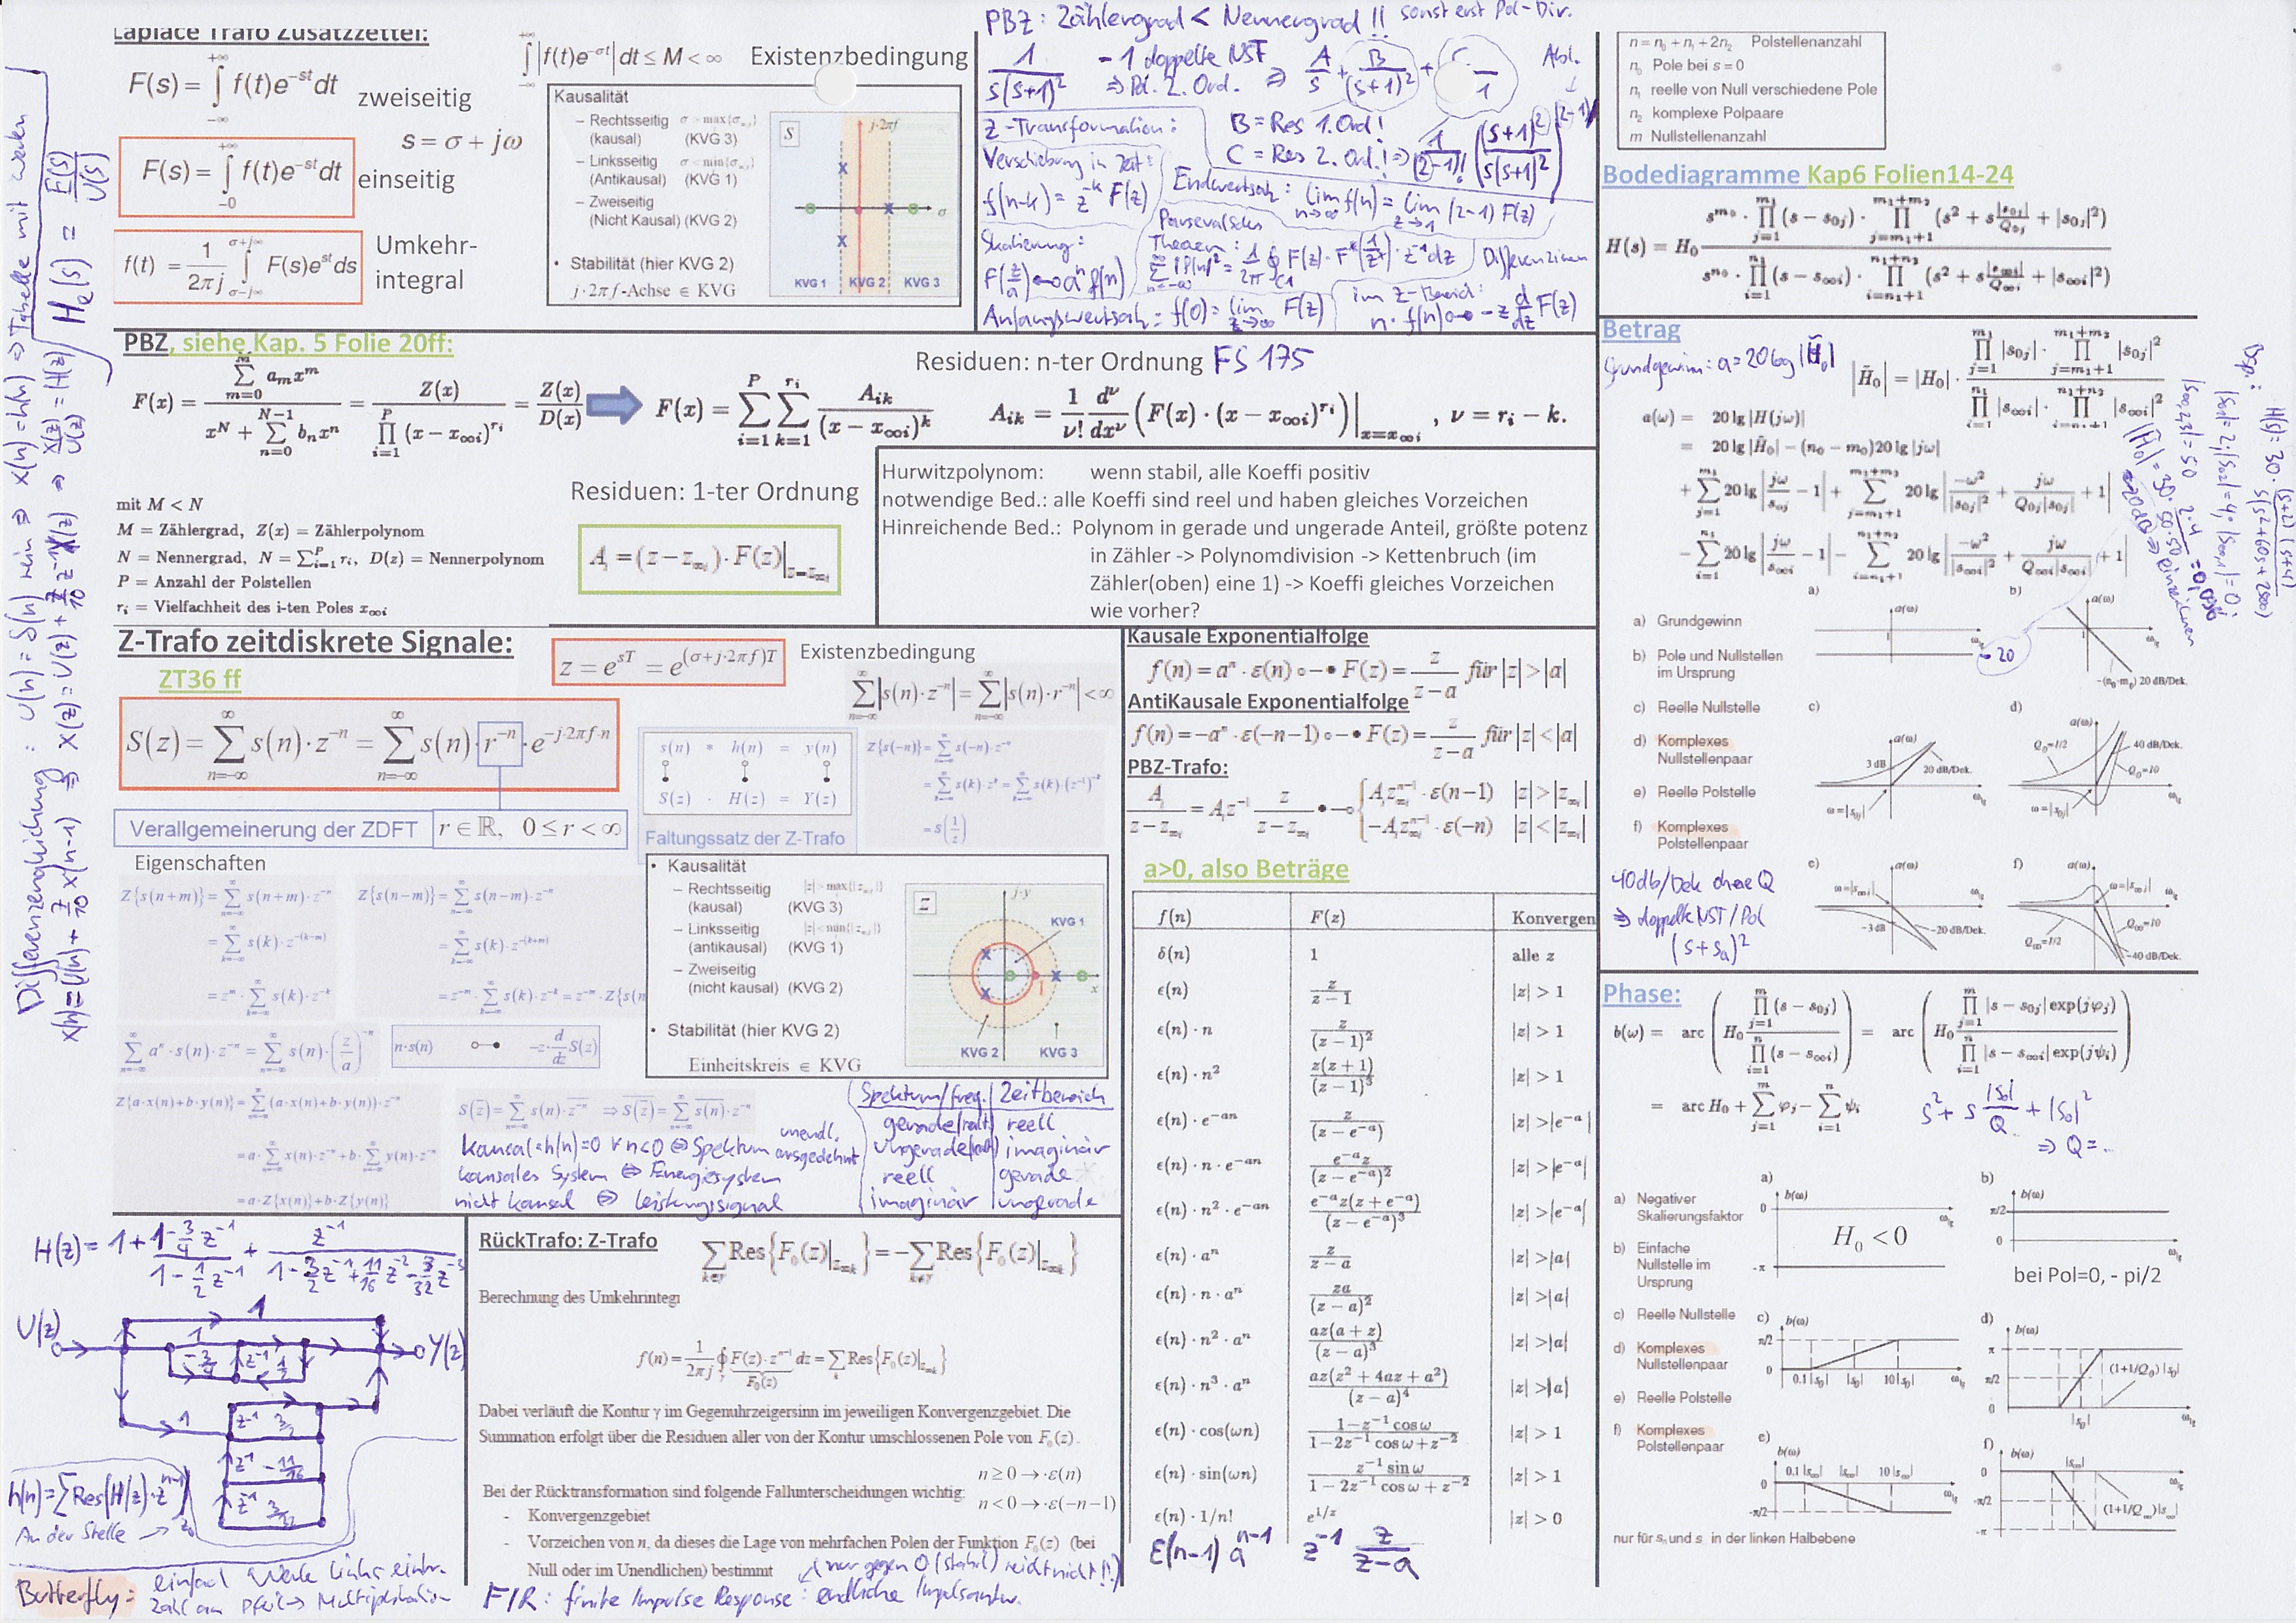 Laplace Trafo Zusatzzettel:
F(s) = ∫_{-∞}^{+∞} f(t)e^{-st}dt zweiseitig
s = σ + jω
F(s) = ∫_{-0}^{+∞} f(t)e^{-st}dt einseitig
f(t) = 1/(2πj) ∫_{σ-j∞}^{σ+j∞} F(s)e^{st}ds Umkehr-
integral
∫_{-∞}^{+∞} |f(t)e^{-σt}| dt ≤ M < ∞ Existenzbedingung
Kausalität
– Rechtsseitig σ > max{σ_{∞,i}}
(kausal) (KVG 3)
– Linksseitig σ < min{σ_{∞,i}}
(Antikausal) (KVG 1)
– Zweiseitig
(Nicht Kausal) (KVG 2)
• Stabilität (hier KVG 2)
j·2πf-Achse ∈ KVG
S
j·2πf
σ
KVG 1 KVG 2 KVG 3
PBZ: Zählergrad < Nennergrad !! sonst erst Pol-Div.
1/(s(s+1)²) – 1 doppelte NST ⇒ Pol. 2. Ord. ⇒ A/s + B/(s+1)² +
B = Res 1. Ord!
C = Res 2. Ord.! ⇒ 1/(2-1)! ((s+1)²/(s(s+1)²))^{(2-1)}
Abl.
Z-Transformation:
Verschiebung in Zeit:
f(n-k) = z^{-k} F(z)
Skalierung:
F(z/a) •–o a^n f(n)
Endwertsatz: lim_{n→∞} f(n) = lim_{z→1} (z-1) F(z)
Parsevalsches
Theorem: Σ_{n=-∞}^{∞} |f(n)|² = 1/2π ∮ F(z)·F*(1/z*)·z^{-1}dz
Differenzieren
im Z-Bereich:
n·f(n) o–• -z d/dz F(z)
Anfangswertsatz: f(0) = lim_{z→∞} F(z)
n = n₀ + n₁ + 2n₂ Polstellenanzahl
n₀ Pole bei s = 0
n₁ reelle von Null verschiedene Pole
n₂ komplexe Polpaare
m Nullstellenanzahl
Bodediagramme Kap6 Folien14-24
H(s) = H₀ (s^{m₀} · ∏_{j=1}^{m₁} (s − s_{0j}) · ∏_{j=m₁+1}^{m₁+m₂} (s² + s|s_{0j}|/Q_{0j} + |s_{0j}|²)) / (s^{n₀} · ∏_{i=1}^{n₁} (s − s_{∞i}) · ∏_{i=n₁+1}^{n₁+n₂} (s² + s|s_{∞i}|/Q_{∞i} + |s_{∞i}|²))
PBZ, siehe Kap. 5 Folie 20ff:
F(x) = (Σ_{m=0}^{M} a_m x^m) / (x^N + Σ_{n=0}^{N-1} b_n x^n) = Z(x) / ∏_{i=1}^{P} (x − x_{∞i})^{r_i} = Z(x)/D(x)
F(x) = Σ_{i=1}^{P} Σ_{k=1}^{r_i} A_{ik}/(x − x_{∞i})^k
Residuen: n-ter Ordnung FS 175
A_{ik} = 1/ν! d^ν/dx^ν (F(x) · (x − x_{∞i})^{r_i})|_{x=x_{∞i}} , ν = r_i − k.
mit M < N
M = Zählergrad, Z(x) = Zählerpolynom
N = Nennergrad, N = Σ_{i=1}^{P} r_i, D(x) = Nennerpolynom
P = Anzahl der Polstellen
r_i = Vielfachheit des i-ten Poles x_{∞i}
Residuen: 1-ter Ordnung
A_i = (z − z_{∞i}) · F(z)|_{z=z_{∞i}}
Hurwitzpolynom: wenn stabil, alle Koeffi positiv
notwendige Bed.: alle Koeffi sind reel und haben gleiches Vorzeichen
Hinreichende Bed.: Polynom in gerade und ungerade Anteil, größte potenz
in Zähler -> Polynomdivision -> Kettenbruch (im
Zähler(oben) eine 1) -> Koeffi gleiches Vorzeichen
wie vorher?
Betrag
Grundgewinn: a = 20 log |H̃₀|
|H̃₀| = |H₀| · (∏_{j=1}^{m₁} |s_{0j}| · ∏_{j=m₁+1}^{m₁+m₂} |s_{0j}|²) / (∏_{i=1}^{n₁} |s_{∞i}| · ∏_{i=n₁+1}^{n₁+n₂} |s_{∞i}|²)
a(ω) = 20 lg |H(jω)|
= 20 lg |H̃₀| − (n₀ − m₀)20 lg |jω|
+ Σ_{j=1}^{m₁} 20 lg |jω/s_{0j} − 1| + Σ_{j=m₁+1}^{m₁+m₂} 20 lg |−ω²/|s_{0j}|² + jω/(Q_{0j}|s_{0j}|) + 1|
− Σ_{i=1}^{n₁} 20 lg |jω/s_{∞i} − 1| − Σ_{i=n₁+1}^{n₁+n₂} 20 lg |−ω²/|s_{∞i}|² + jω/(Q_{∞i}|s_{∞i}|) + 1|
Bsp.: H(s) = 30 · (s+2)(s+4)/(s(s²+60s+2500))
|s₀₁| = 2; |s₀₂| = 4; |s_{∞1}| = 0;
|s_{∞2,3}| = 50
|H̃₀| = 30 · 2·4/(50·50) = 0,096
≈ -20dB ⇒ einzeichnen
a) Grundgewinn
b) Pole und Nullstellen
im Ursprung
c) Reelle Nullstelle
d) Komplexes
Nullstellenpaar
e) Reelle Polstelle
f) Komplexes
Polstellenpaar
a) a(ω) 1 -20
b) a(ω) 1 −(n₀−m₀) 20 dB/Dek.
c) a(ω) 3 dB 20 dB/Dek. ω=|s_{0j}|
d) a(ω) Q₀=1/2 40 dB/Dek. Q₀=10 ω=|s_{0j}|
e) a(ω) ω=|s_{∞i}| −3 dB −20 dB/Dek.
f) a(ω) ω=|s_{∞i}| Q_∞=10 Q_∞=1/2 −40 dB/Dek.
40db/Dek ohne Q
⇒ doppelte NST/Pol
(s+s_a)²
Z-Trafo zeitdiskrete Signale:
ZT36 ff
z = e^{sT} = e^{(σ+j·2πf)T}
Existenzbedingung
Σ_{n=-∞}^{∞} |s(n)·z^{-n}| = Σ_{n=-∞}^{∞} |s(n)·r^{-n}| < ∞
S(z) = Σ_{n=-∞}^{∞} s(n)·z^{-n} = Σ_{n=-∞}^{∞} s(n)·r^{-n}·e^{-j·2πf·n}
Verallgemeinerung der ZDFT r ∈ ℝ, 0 ≤ r < ∞
s(n) * h(n) = y(n)
S(z) · H(z) = Y(z)
Faltungssatz der Z-Trafo
Z{s(−n)} = Σ s(−n)·z^{-n}
= Σ s(k)·z^k = Σ s(k)·(z^{-1})^{-k}
= S(1/z)
Eigenschaften
Z{s(n+m)} = Σ s(n+m)·z^{-n}
= Σ s(k)·z^{-(k−m)}
= z^m · Σ s(k)·z^{-k}
Z{s(n−m)} = Σ s(n−m)·z^{-n}
= Σ s(k)·z^{-(k+m)}
= z^{-m} · Σ s(k)·z^{-k} = z^{-m}·Z{s(n
Σ a^n·s(n)·z^{-n} = Σ s(n)·(z/a)^{-n}
n·s(n) o–• −z·d/dz S(z)
Z{a·x(n)+b·y(n)} = Σ(a·x(n)+b·y(n))·z^{-n}
= a·Σ x(n)·z^{-n} + b·Σ y(n)·z^{-n}
= a·Z{x(n)}+b·Z{y(n)}
• Kausalität
– Rechtsseitig |z| > max{|z_{∞,i}|}
(kausal) (KVG 3)
– Linksseitig |z| < min{|z_{∞,i}|}
(antikausal) (KVG 1)
– Zweiseitig
(nicht kausal) (KVG 2)
• Stabilität (hier KVG 2)
Einheitskreis ∈ KVG
z
j·y
x
1
KVG 1
KVG 2 KVG 3
kausal: h(n)=0 ∀ n<0 ⇔ Spektrum unendl. ausgedehnt
kausales System ⇔ Energiesystem
nicht kausal ⇔ Leistungssignal
Spektum/freq. | Zeitbereich
gerade | reell
ungerade | imaginär
reell | gerade
imaginär | ungerade
Kausale Exponentialfolge
f(n) = a^n · ε(n) o–• F(z) = z/(z−a) für |z| > |a|
AntiKausale Exponentialfolge
f(n) = −a^n · ε(−n−1) o–• F(z) = z/(z−a) für |z| < |a|
PBZ-Trafo:
A_i/(z−z_{∞i}) = A_i z^{-1} z/(z−z_{∞i}) •–o { A_i z_{∞i}^{n−1} · ε(n−1) |z| > |z_{∞i}|
−A_i z_{∞i}^{n−1} · ε(−n) |z| < |z_{∞i}|
a>0, also Beträge
f(n) F(z) Konvergen
δ(n) 1 alle z
ϵ(n) z/(z−1) |z| > 1
ϵ(n)·n z/(z−1)² |z| > 1
ϵ(n)·n² z(z+1)/(z−1)³ |z| > 1
ϵ(n)·e^{−an} z/(z−e^{−a}) |z| > |e^{−a}|
ϵ(n)·n·e^{−an} e^{−a}z/(z−e^{−a})² |z| > |e^{−a}|
ϵ(n)·n²·e^{−an} e^{−a}z(z+e^{−a})/(z−e^{−a})³ |z| > |e^{−a}|
ϵ(n)·a^n z/(z−a) |z| > |a|
ϵ(n)·n·a^n za/(z−a)² |z| > |a|
ϵ(n)·n²·a^n az(a+z)/(z−a)³ |z| > |a|
ϵ(n)·n³·a^n az(z²+4az+a²)/(z−a)⁴ |z| > |a|
ϵ(n)·cos(ωn) (1−z^{−1} cos ω)/(1−2z^{−1} cos ω+z^{−2}) |z| > 1
ϵ(n)·sin(ωn) z^{−1} sin ω/(1−2z^{−1} cos ω+z^{−2}) |z| > 1
ϵ(n)·1/n! e^{1/z} |z| > 0
ε(n-1) a^{n-1} z^{-1} z/(z-a)
Phase:
b(ω) = arc (H₀ ∏_{j=1}^{m}(s − s_{0j}) / ∏_{i=1}^{n}(s − s_{∞i})) = arc (H₀ ∏_{j=1}^{m}|s − s_{0j}| exp(jφ_j) / ∏_{i=1}^{n}|s − s_{∞i}| exp(jψ_i))
= arc H₀ + Σ_{j=1}^{m} φ_j − Σ_{i=1}^{n} ψ_i
s² + s |s₀|/Q + |s₀|²
⇒ Q = ..
a) Negativer
Skalierungsfaktor
b) Einfache
Nullstelle im
Ursprung
c) Reelle Nullstelle
d) Komplexes
Nullstellenpaar
e) Reelle Polstelle
f) Komplexes
Polstellenpaar
a) b(ω) 0 −π H₀ < 0
b) b(ω) π/2 0
bei Pol=0, - pi/2
c) b(ω) π/2 0 0.1|s₀| |s₀| 10|s₀|
d) b(ω) π π/2 0 |s₀| (1+1/Q₀)|s₀|
e) b(ω) 0 −π/2 0.1|s_∞| |s_∞| 10|s_∞|
f) b(ω) 0 −π/2 −π |s_∞| (1+1/Q_∞)|s_∞|
nur für s₀ und s in der linken Halbebene
H(z) = 1 + (1 - 3/4 z^{-1})/(1 - 1/2 z^{-1}) + z^{-1}/(1 - 3/2 z^{-1} + 11/16 z^{-2} - 3/32 z^{-3})
U(z) 1 1 -3/4 z^{-1} 1/2 Y(z)
1 z^{-1} 3/2
z^{-1} -11/16
z^{-1} 3/32
h(n) = Σ Res(H(z)·z^{n-1})
An der Stelle → z₀
Butterfly: einfach Werte links eintr.
Zahl am Pfeil → Multiplikation
RückTrafo: Z-Trafo
Σ_{k∈γ} Res{F₀(z)|_{z_{∞k}}} = −Σ_{k∉γ} Res{F₀(z)|_{z_{∞k}}}
Berechnung des Umkehrintegr
f(n) = 1/(2πj) ∮ F(z)·z^{n−1} dz = Σ Res{F₀(z)|_{z_{∞k}}}
F₀(z)
Dabei verläuft die Kontur γ im Gegenuhrzeigersinn im jeweiligen Konvergenzgebiet. Die
Summation erfolgt über die Residuen aller von der Kontur umschlossenen Pole von F₀(z).
n ≥ 0 → ·ε(n)
Bei der Rücktransformation sind folgende Fallunterscheidungen wichtig: n < 0 → ·ε(−n−1)
- Konvergenzgebiet
- Vorzeichen von n, da dieses die Lage von mehrfachen Polen der Funktion F₀(z) (bei
Null oder im Unendlichen) bestimmt
(nur gegen 0 (stabil) reicht nicht!!)
FIR: finite Impulse Response: endliche Impulsantw.
Differenzengleichung: u(n) = δ(n) rein ⇒ x(n) = h(n) ⇒ Tabelle mit werten
x(n) = u(n) + 7/10 x(n-1) ⇒ X(z) = U(z) + 7/10 z^{-1} X(z) ⇒ X(z)/U(z) = H(z)
H_e(s) = E(s)/U(s)